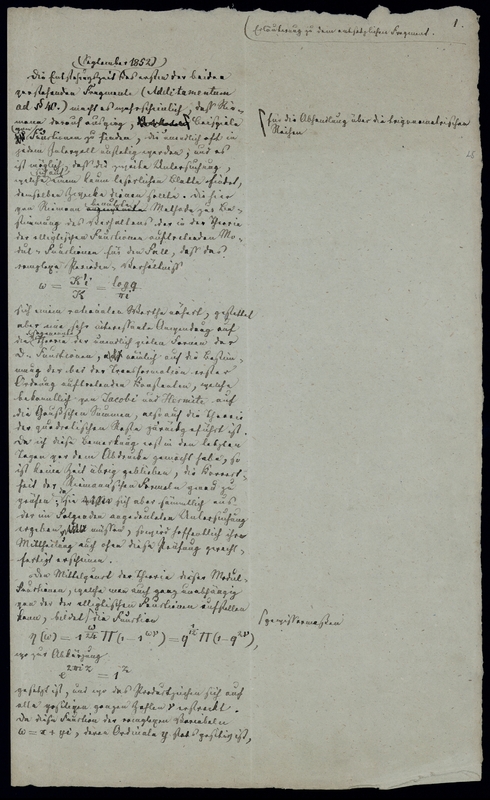 1.
Erläuterung zu dem entsetzlichen Fragment.
(September 1852)
Die Entstehungszeit des ersten der beiden
vorstehenden Fragmente (Additamentum
ad §40.) macht es wahrscheinlich, dass Rie-
mann darauf ausging, Beispiele
von Functionen zu finden, die unendlich oft in
für die Abhandlung über die trigonometrischen
Reihen
jedem Intervall unstetig werden, und es
ist möglich, dass die zweite Untersuchung,
welche einem kaum leserlichen Blatte
demselben Zwecke dienen sollte. Die hier
von Riemann benutzte Methode zur Be-
stimmung des Verhaltens der in der Theorie
der elliptischen Functionen auftretenden Mo-
dul-Functionen für den Fall, dass das
complexe Perioden-Verhältniss
ω = K'i/K = log q/πi
sich einem rationalen Werthe nähert, gestattet
aber eine sehr interessante Anwendung auf
die Theorie der unendlich vielen Formen der
ϑ-Functionen, nämlich auf die Bestim-
mung der bei der Transformation erster
Ordnung auftretenden Constanten, welche
bekanntlich von Jacobi und Hermite auf
die Gaußschen Summen, also auf die Theorie
der quadratischen Reste zurückgeführt ist.
Da ich diese Bemerkung erst in den letzten
Tagen vor dem Abdrucke gemacht habe, so
ist keine Zeit übrig geblieben, die Correct-
heit der Riemannschen Formeln genau zu
prüfen; da sie sich aber sämmtlich aus
der im Folgenden angedeuteten Untersuchung
ergeben müssen, so wird hoffentlich ihre
Mittheilung auch ohne diese Prüfung gerecht-
fertigt erscheinen.
Den Mittelpunct der Theorie dieser Modul-
Functionen, welche man auch ganz unabhängig
von der der elliptischen Functionen aufstellen
kann, bildet die Function
gewissermaßen
η(ω) = 1^{ω/24} Π(1 − 1^{ων}) = q^{1/12} Π(1 − q^{2ν}),
wo zur Abkürzung
e^{2πiz} = 1^z
gesetzt ist, und wo das Productzeichen sich auf
alle positiven ganzen Zahlen ν erstreckt.
Da diese Function der complexen Variabelen
ω = x + yi, deren Ordinate y stets positiv ist,